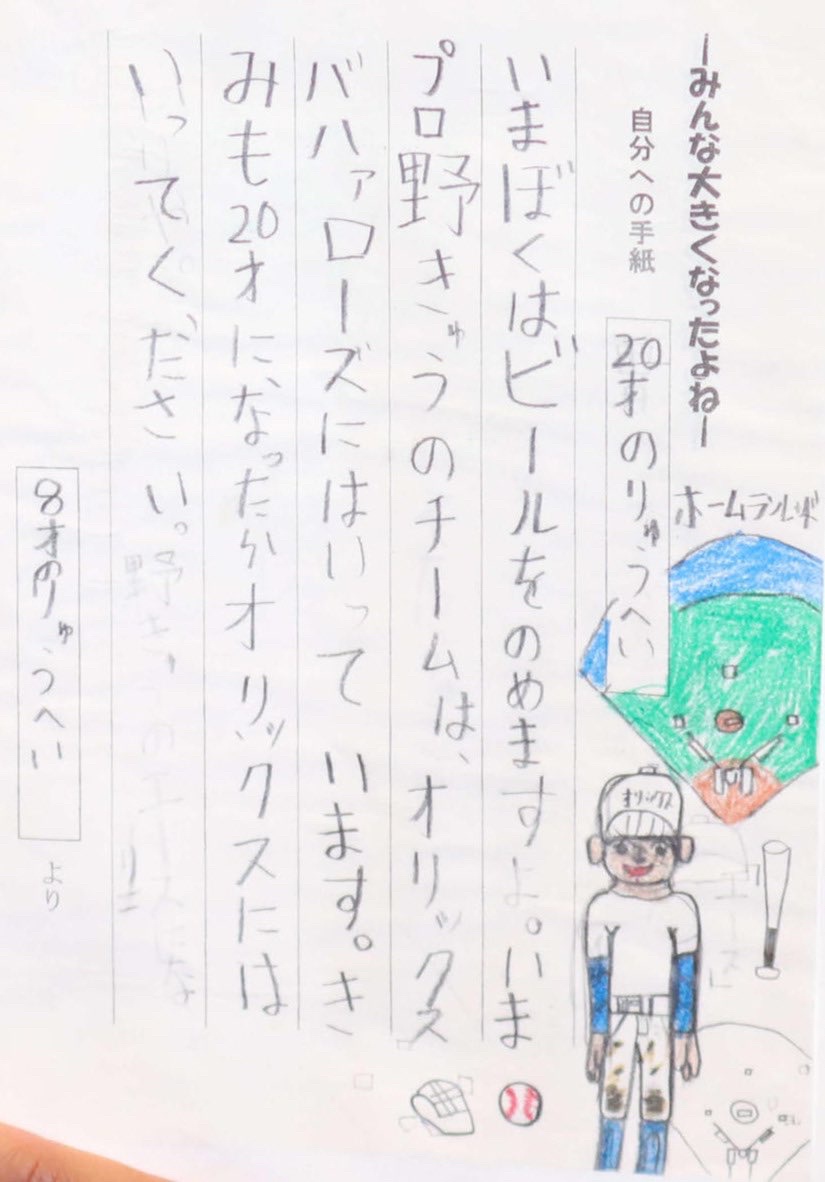 ーみんな大きくなったよねー
自分への手紙
20才のりゅうへい
ホームラン
いまぼくはビールをのめますよ。いま
プロ野きゅうのチームは、オリックス
バハァローズにはいって います。き
みも20才に、なったからオリックスには
いってください。
8才のりゅうへい
より
オリックス